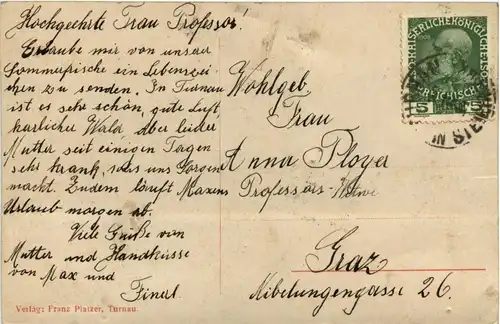 Hochgeehrte Frau Professor!
Erlaube mir von unserer
Sommerfrische ein Lebenszei-
chen zu senden. In Turnau
ist es sehr schön, gute Luft,
herrlicher Wald, aber leider
Mutter seit einigen Tagen
sehr krank, was uns Sorgen
macht. Zudem läuft Maxens
Urlaub morgen ab.
Viele Grüße von
Mutter und Handküsse
von Max und
Wohlgeb.
Frau
Anna Ployer
Professors-Witwe
Graz
Nibelungengasse 26.
5
5
IN STEI
Verlag: Franz Platzer, Turnau.